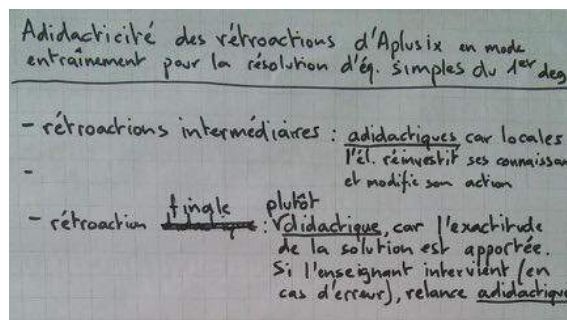 Adidacticité des rétroactions d'Aplusix en mode
entraînement pour la résolution d'éq. simples du 1er deg
- rétroactions intermédiaires : adidactiques car locales
l'él. réinvestit ses connaissan
et modifie son action
-
plutôt
- rétroaction finale : didactique, car l'exactitude
de la solution est apportée.
Si l'enseignant intervient (en
cas d'erreur), relance adidactique